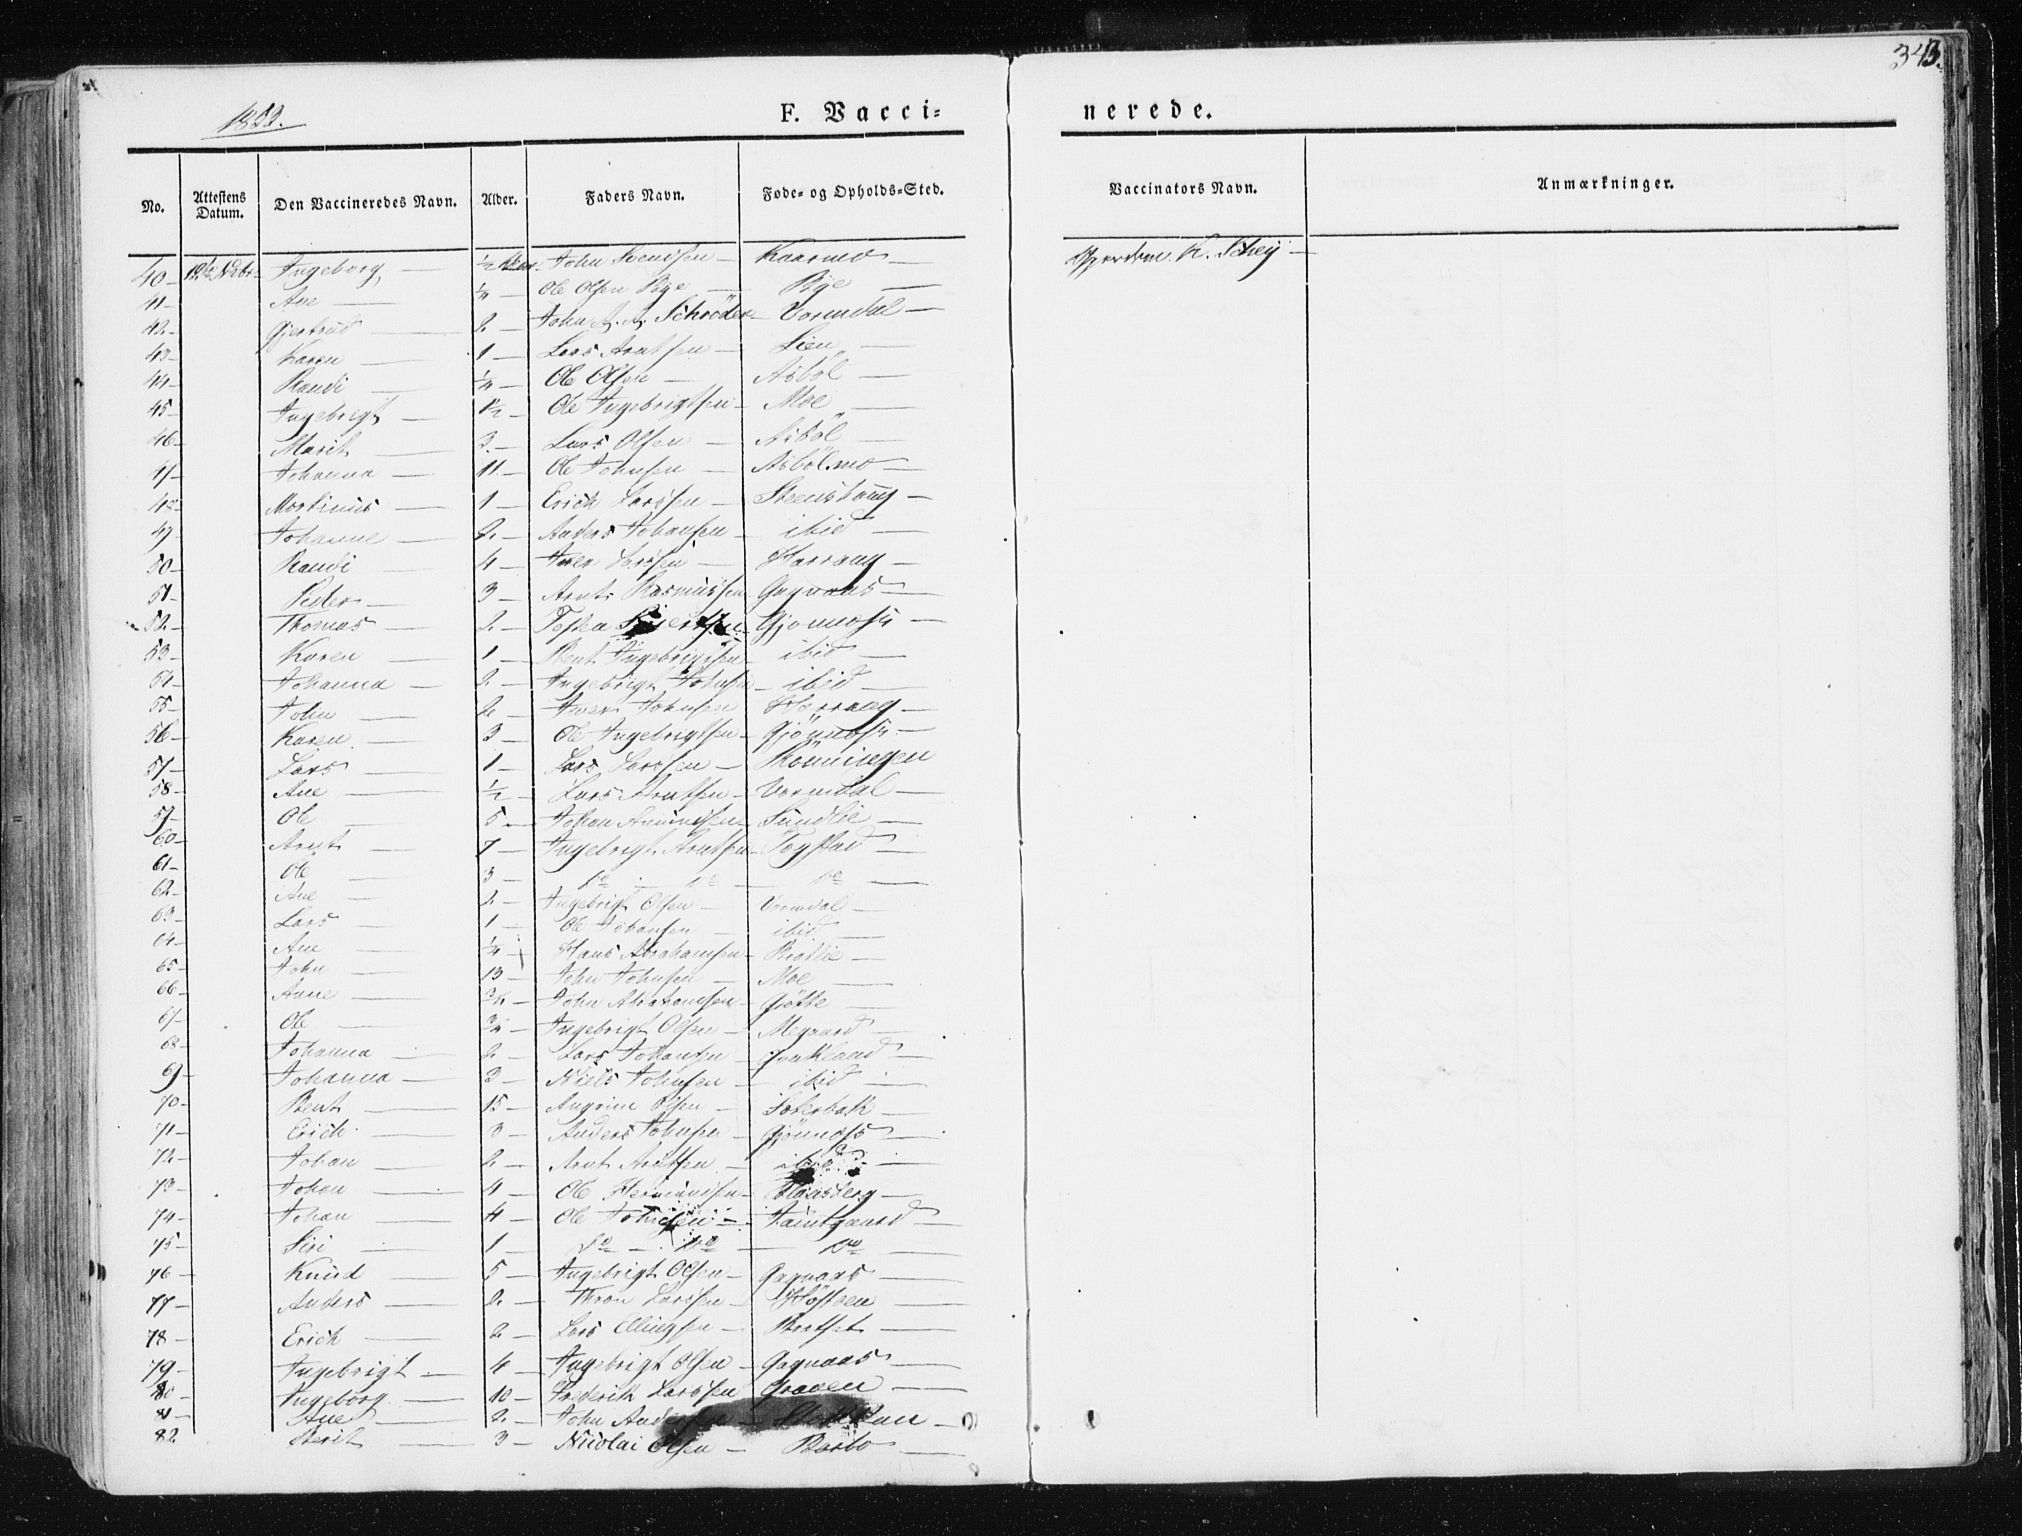 343.
1853.
F. Vacci=
nerede.
No. Attestens Datum. Den Vaccineredes Navn. Alder. Faders Navn. Føde- og Opholds-Sted. Vaccinators Navn. Anmærkninger.
40 Ingeborg ½ John Svendsen Kaarmo K. Schey
41 Ane ¼ Ole Olsen Rye Rye
42 Gjertrud 2 John A. A. Schröder Vormdal
43 Karen 1 Lars Arntsen Lien
44 Randi ¼ Ole Olsen Asböl
45 Ingebrigt 1½ Ole Ingebrigtsen Moe
46 Marit 3 Lars Olsen Asböl
47 Johanna 11 Ole Johnsen Asbölmo
48 Martinus 1 Erich Larssen
49 Johanne 2 Anders Johansen ibid
50 Randi 4 Iver Larssen Harrang
51 Peder 3 Arnt Rasmussen Gagnaas
52 Thomas 2
53 Karen 1 Bent Ingebrigtsen ibid
54 Johanna 2 Ingebrigt Johnsen ibid
55 John 2 Iver Johnsen Harrang
56 Karen 3 Ole Ingebrigtsen Gjönnæss
57 Lars 1 Lars Larssen Rönningen
58 Ane ½ Lars Arntsen Vormdal
59 Ole 5 Johan Sundlie
60 Arnt 7 Ingebrigt Arntsen Togstad
61 Ole 3 do do do
62 Ane 2 Ingebrigt Olsen Vormdal
63 Lars 1 Ole Johansen ibid
64 Ane ¼ Hans Abrahamsen
65 John 13 John Johnsen Moe
66 Anne ¾ John Abrahamsen
67 Ole ¾ Ingebrigt Olsen Megaard
68 Johanna 2 Lars Johansen
69 Johanna 3 Niels Johnsen ibid
70 Bent 15 Angrim Olsen
71 Erich 3 Anders Johnsen Gjönnæss
72 Johan 2 Arnt Arntsen ibid
73 Johan 4 Ole Hermundsen
74 Johan 4 Ole Johnsen
75 Siri 1 do do do
76 Knud 5 Ingebrigt Olsen Gagnaas
77 Anders 2 Thron Larssen
78 Erich 2 Lars Ellingsen
79 Ingebrigt 4 Ingebrigt Olsen Gagnaas
80 Ingeborg 10 Frederik Larssen Graven
81 Ane 2 John Andersen
82 Berit 3 Nicolai Olsen